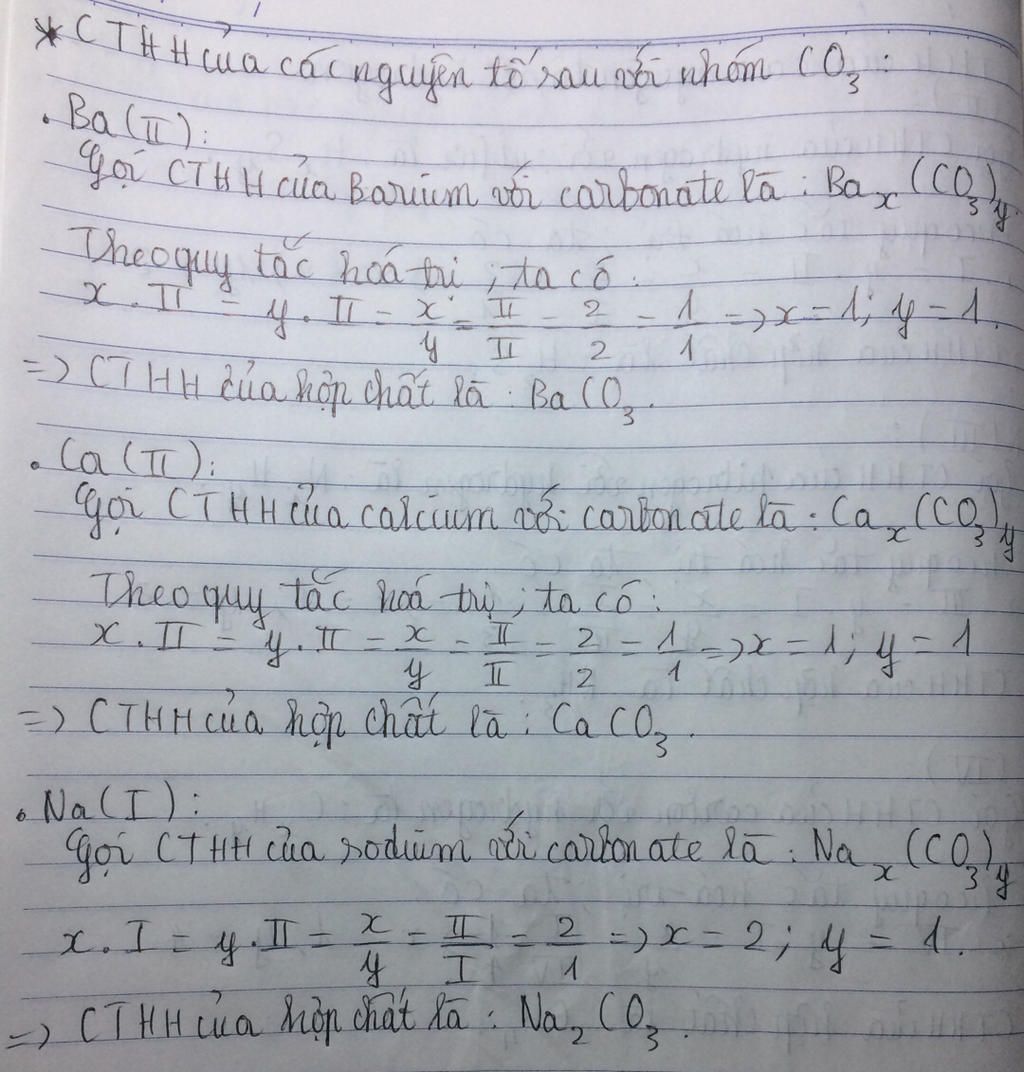 * CTHH của các nguyên tố sau với nhóm CO₃:
. Ba (II):
Gọi CTHH của Barium với carbonate là: Baₓ(CO₃)y
Theo quy tắc hoá trị, ta có:
x . II = y . II = x/y = II/II = 2/2 = 1/1 => x = 1; y = 1.
=> CTHH của hợp chất là: BaCO₃.
. Ca (II):
Gọi CTHH của calcium với carbonate là: Caₓ(CO₃)y
Theo quy tắc hoá trị, ta có:
x . II = y . II = x/y = II/II = 2/2 = 1/1 => x = 1; y = 1
=> CTHH của hợp chất là: CaCO₃.
. Na (I):
Gọi CTHH của sodium với carbonate là: Naₓ(CO₃)y
x . I = y . II = x/y = II/I = 2/1 => x = 2; y = 1.
=> CTHH của hợp chất là: Na₂CO₃.